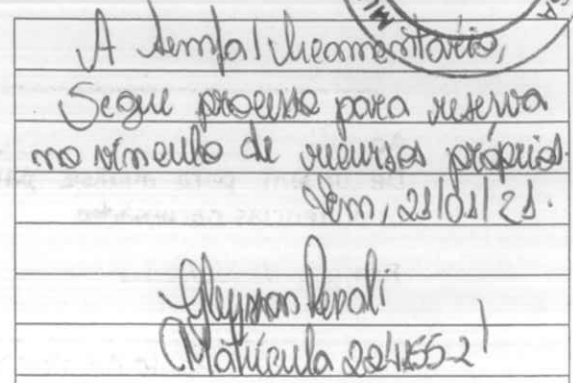 A Semfa/Orçamentário,
Segue processo para reserva
no vínculo de recursos próprios.
Em, 21/01/21.
Matrícula 224155-2